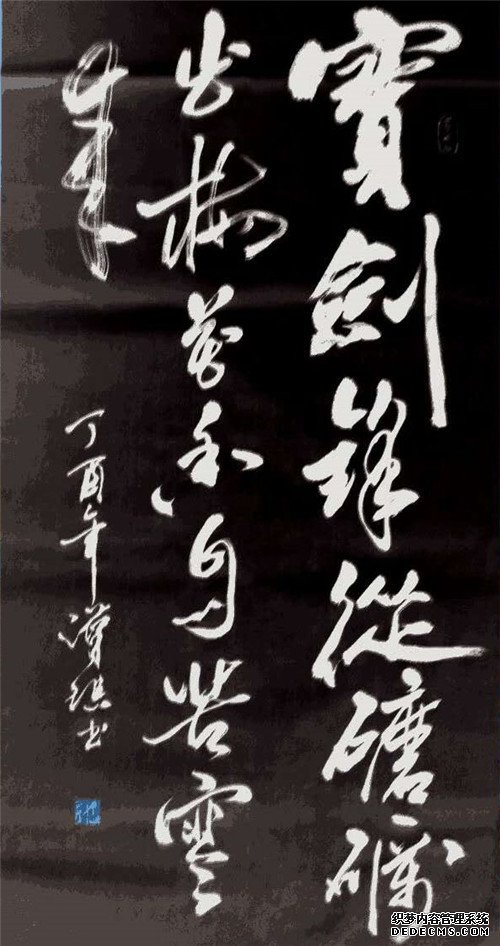 寶劍鋒從磨礪
出梅花香自苦寒
來
丁酉年書
织梦内容管理系统
DEDECMS.COM